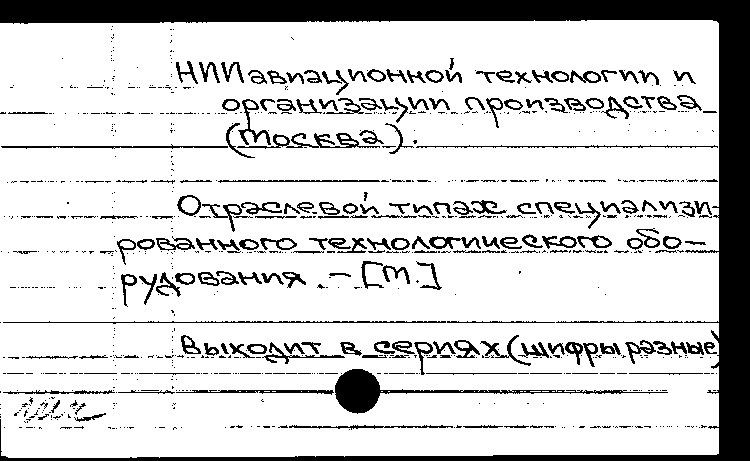 НИИ авиационной технологии и
организации производства
(Москва).
Отраслевой типаж специализи-
рованного технологического обо-
рудования. – [М.]
Выходит в сериях (шифры разные)